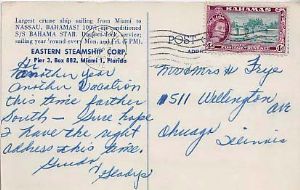 Largest cruise ship sailing from Miami to
NASSAU, BAHAMAS! 100% air-conditioned
S/S BAHAMA STAR.
sailing year 'round every Mon. and Fri. (5 PM).
EASTERN STEAMSHIP CORP.
Pier 3, Box 882, Miami 1, Florida
Hi
Another Year
Another Vacation
this time farther
South - Sure hope
I have the right
address this time.
Guido
Gladys
BAHAMAS
POST
ADDRESS
Mr & Mrs H Frye
1511 Wellington
Ave
Chicago
Illinois